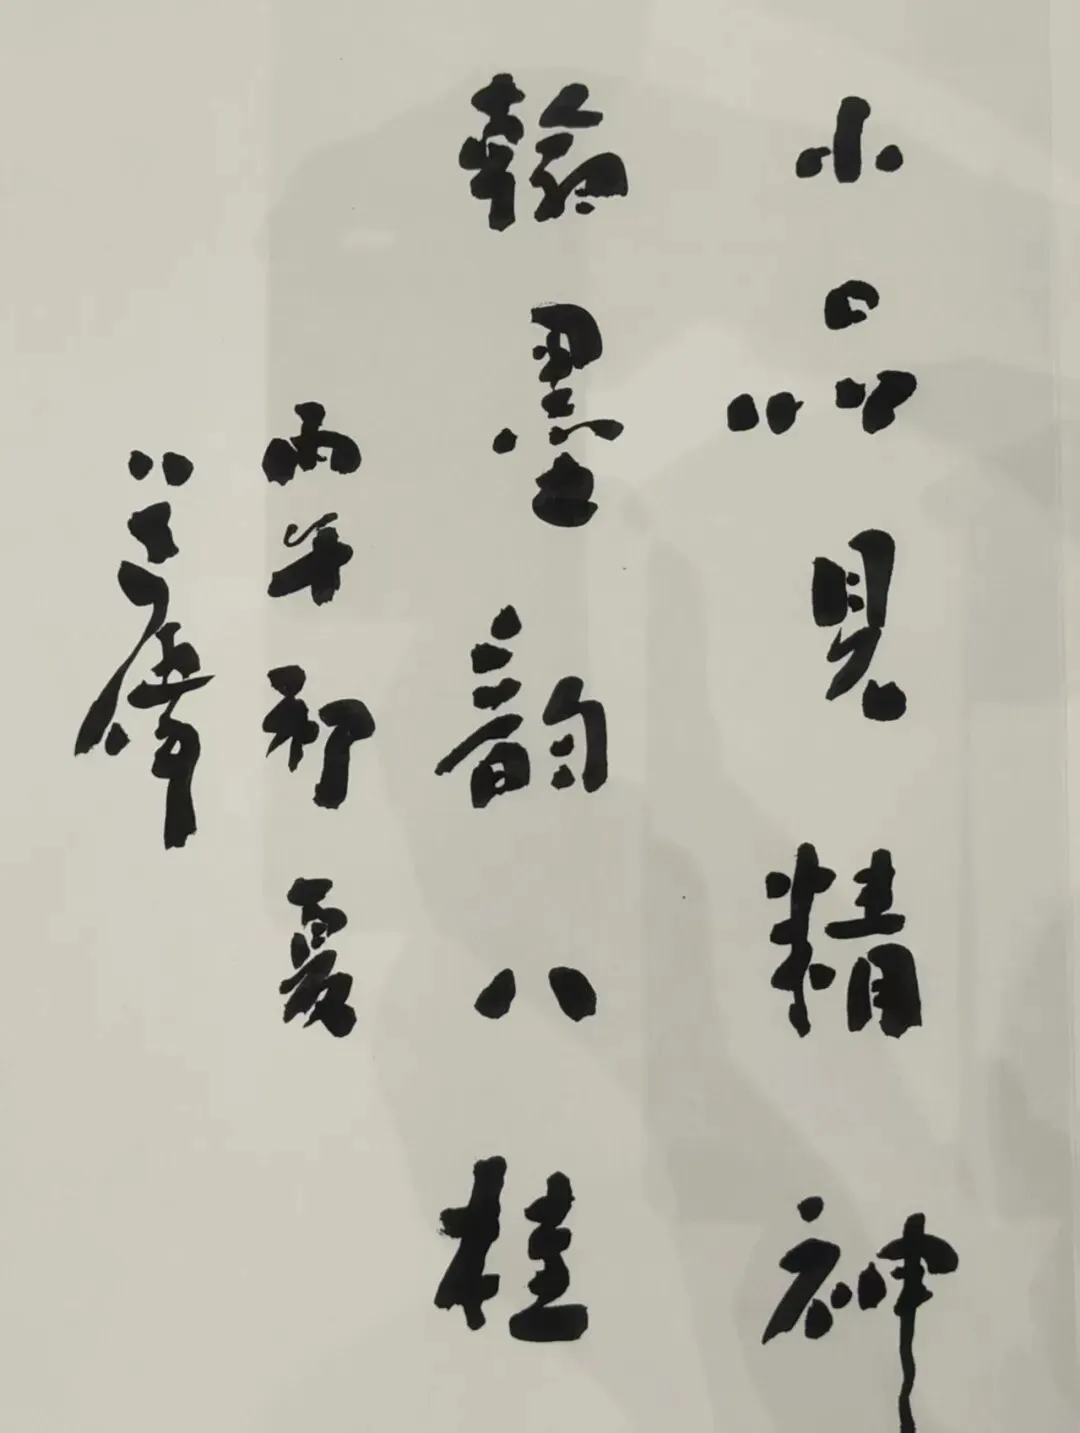 小品見精神
翰墨韵八桂
丙午初夏